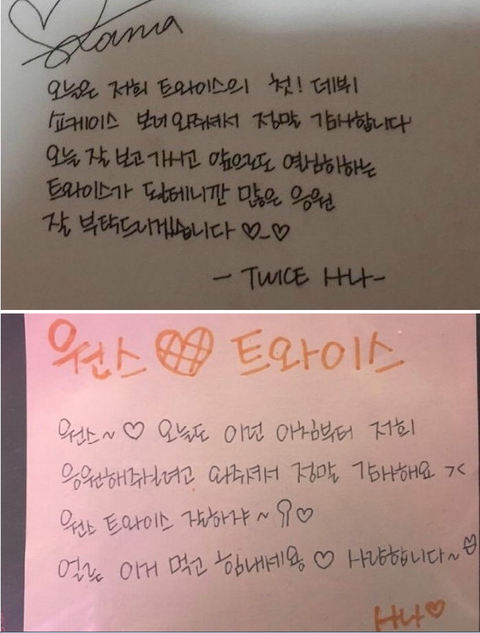 Sana
오늘은 저희 트와이스의 첫! 데뷔
쇼케이스 보러 와주셔서 정말 감사합니다
오늘 잘 보고 가시고 앞으로도 열심히하는
트와이스가 될테니깐 많은 응원
잘 부탁드리겠습니다 ♡_♡
- TWICE 사나 -
원스 ♡ 트와이스
원스~ ♡ 오늘도 이런 아침부터 저희
응원해주실려고 와주셔서 정말 감사해요 ><
원스 트와이스 잘하쟈~ ♡
얼른 이거 먹고 힘내세용 ♡ 사랑합니다~
사나♡